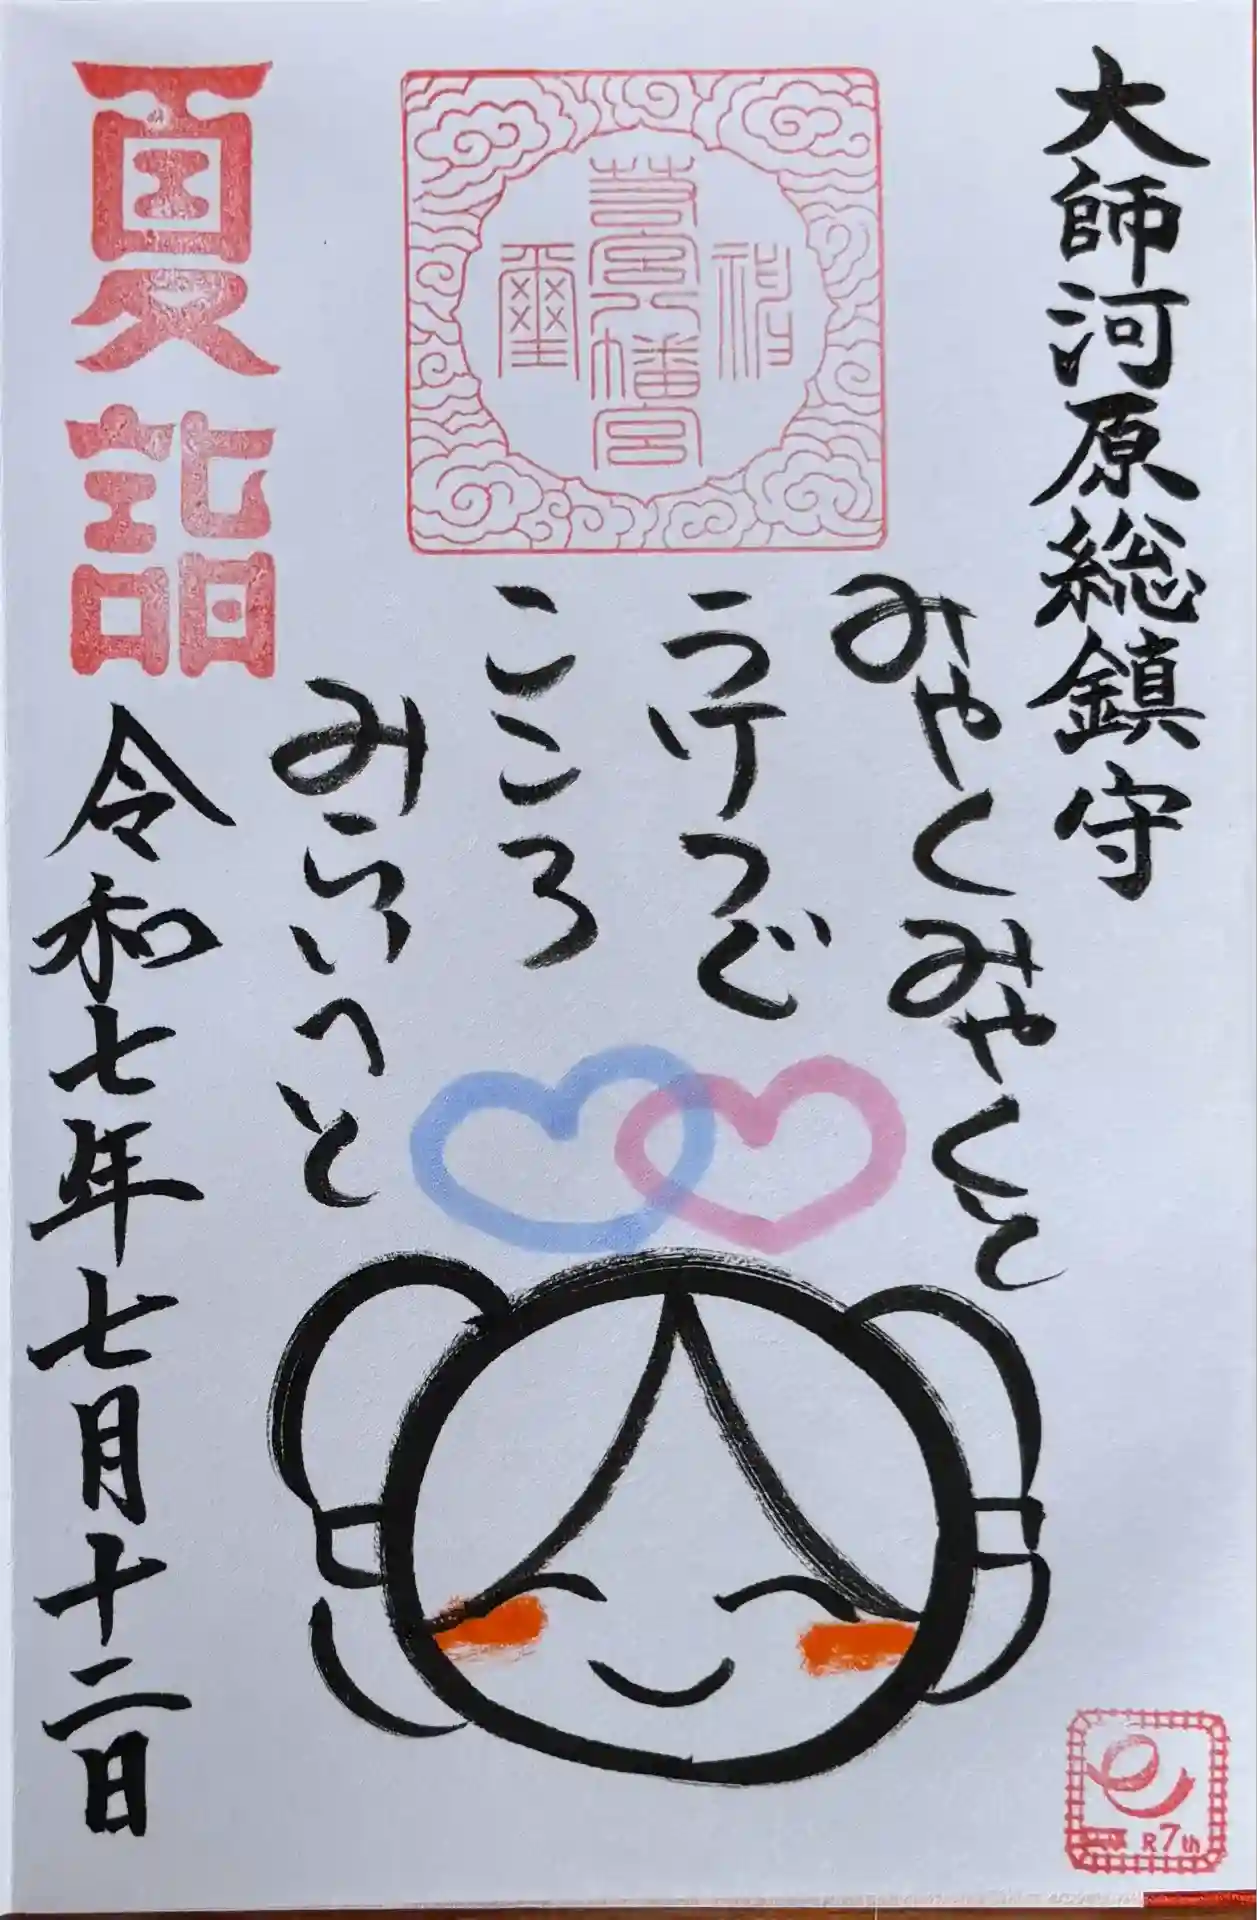 大師河原総鎮守
みやくみやくと
うけつぐ
こころ
みらいへと
夏詣
令和七年七月十二日
若宮八幡宮
R7th